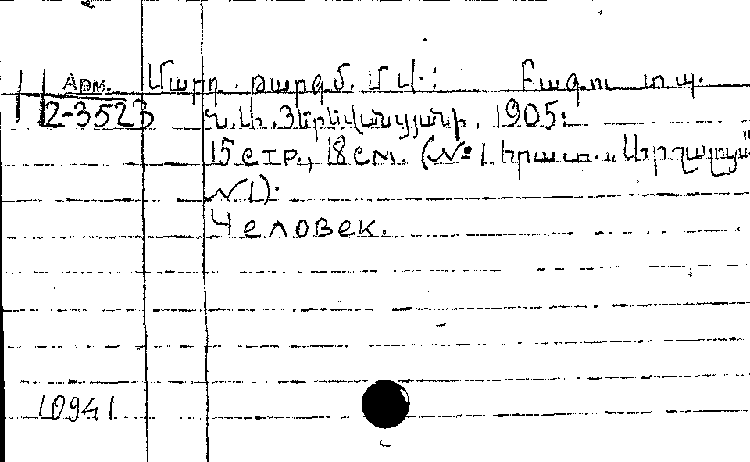 Арм. Մարդ. թարգմ. Մ. Վ.: Բագու տպ.
2-3523 Ն. Ա. Յերևանցյանի, 1905:
15 стр., 18 см. (№ 1. հրատ. „Արշալույս"
№ 1).
Человек.
10941